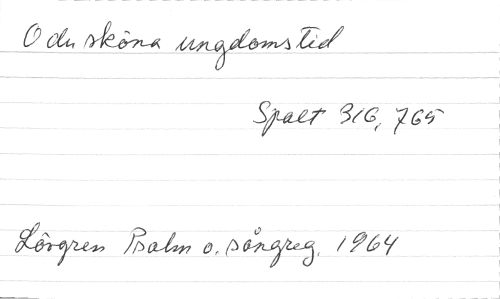 O du sköna ungdomstid
Spalt 316, 765
Lövgren Psalm o. sångreg. 1964